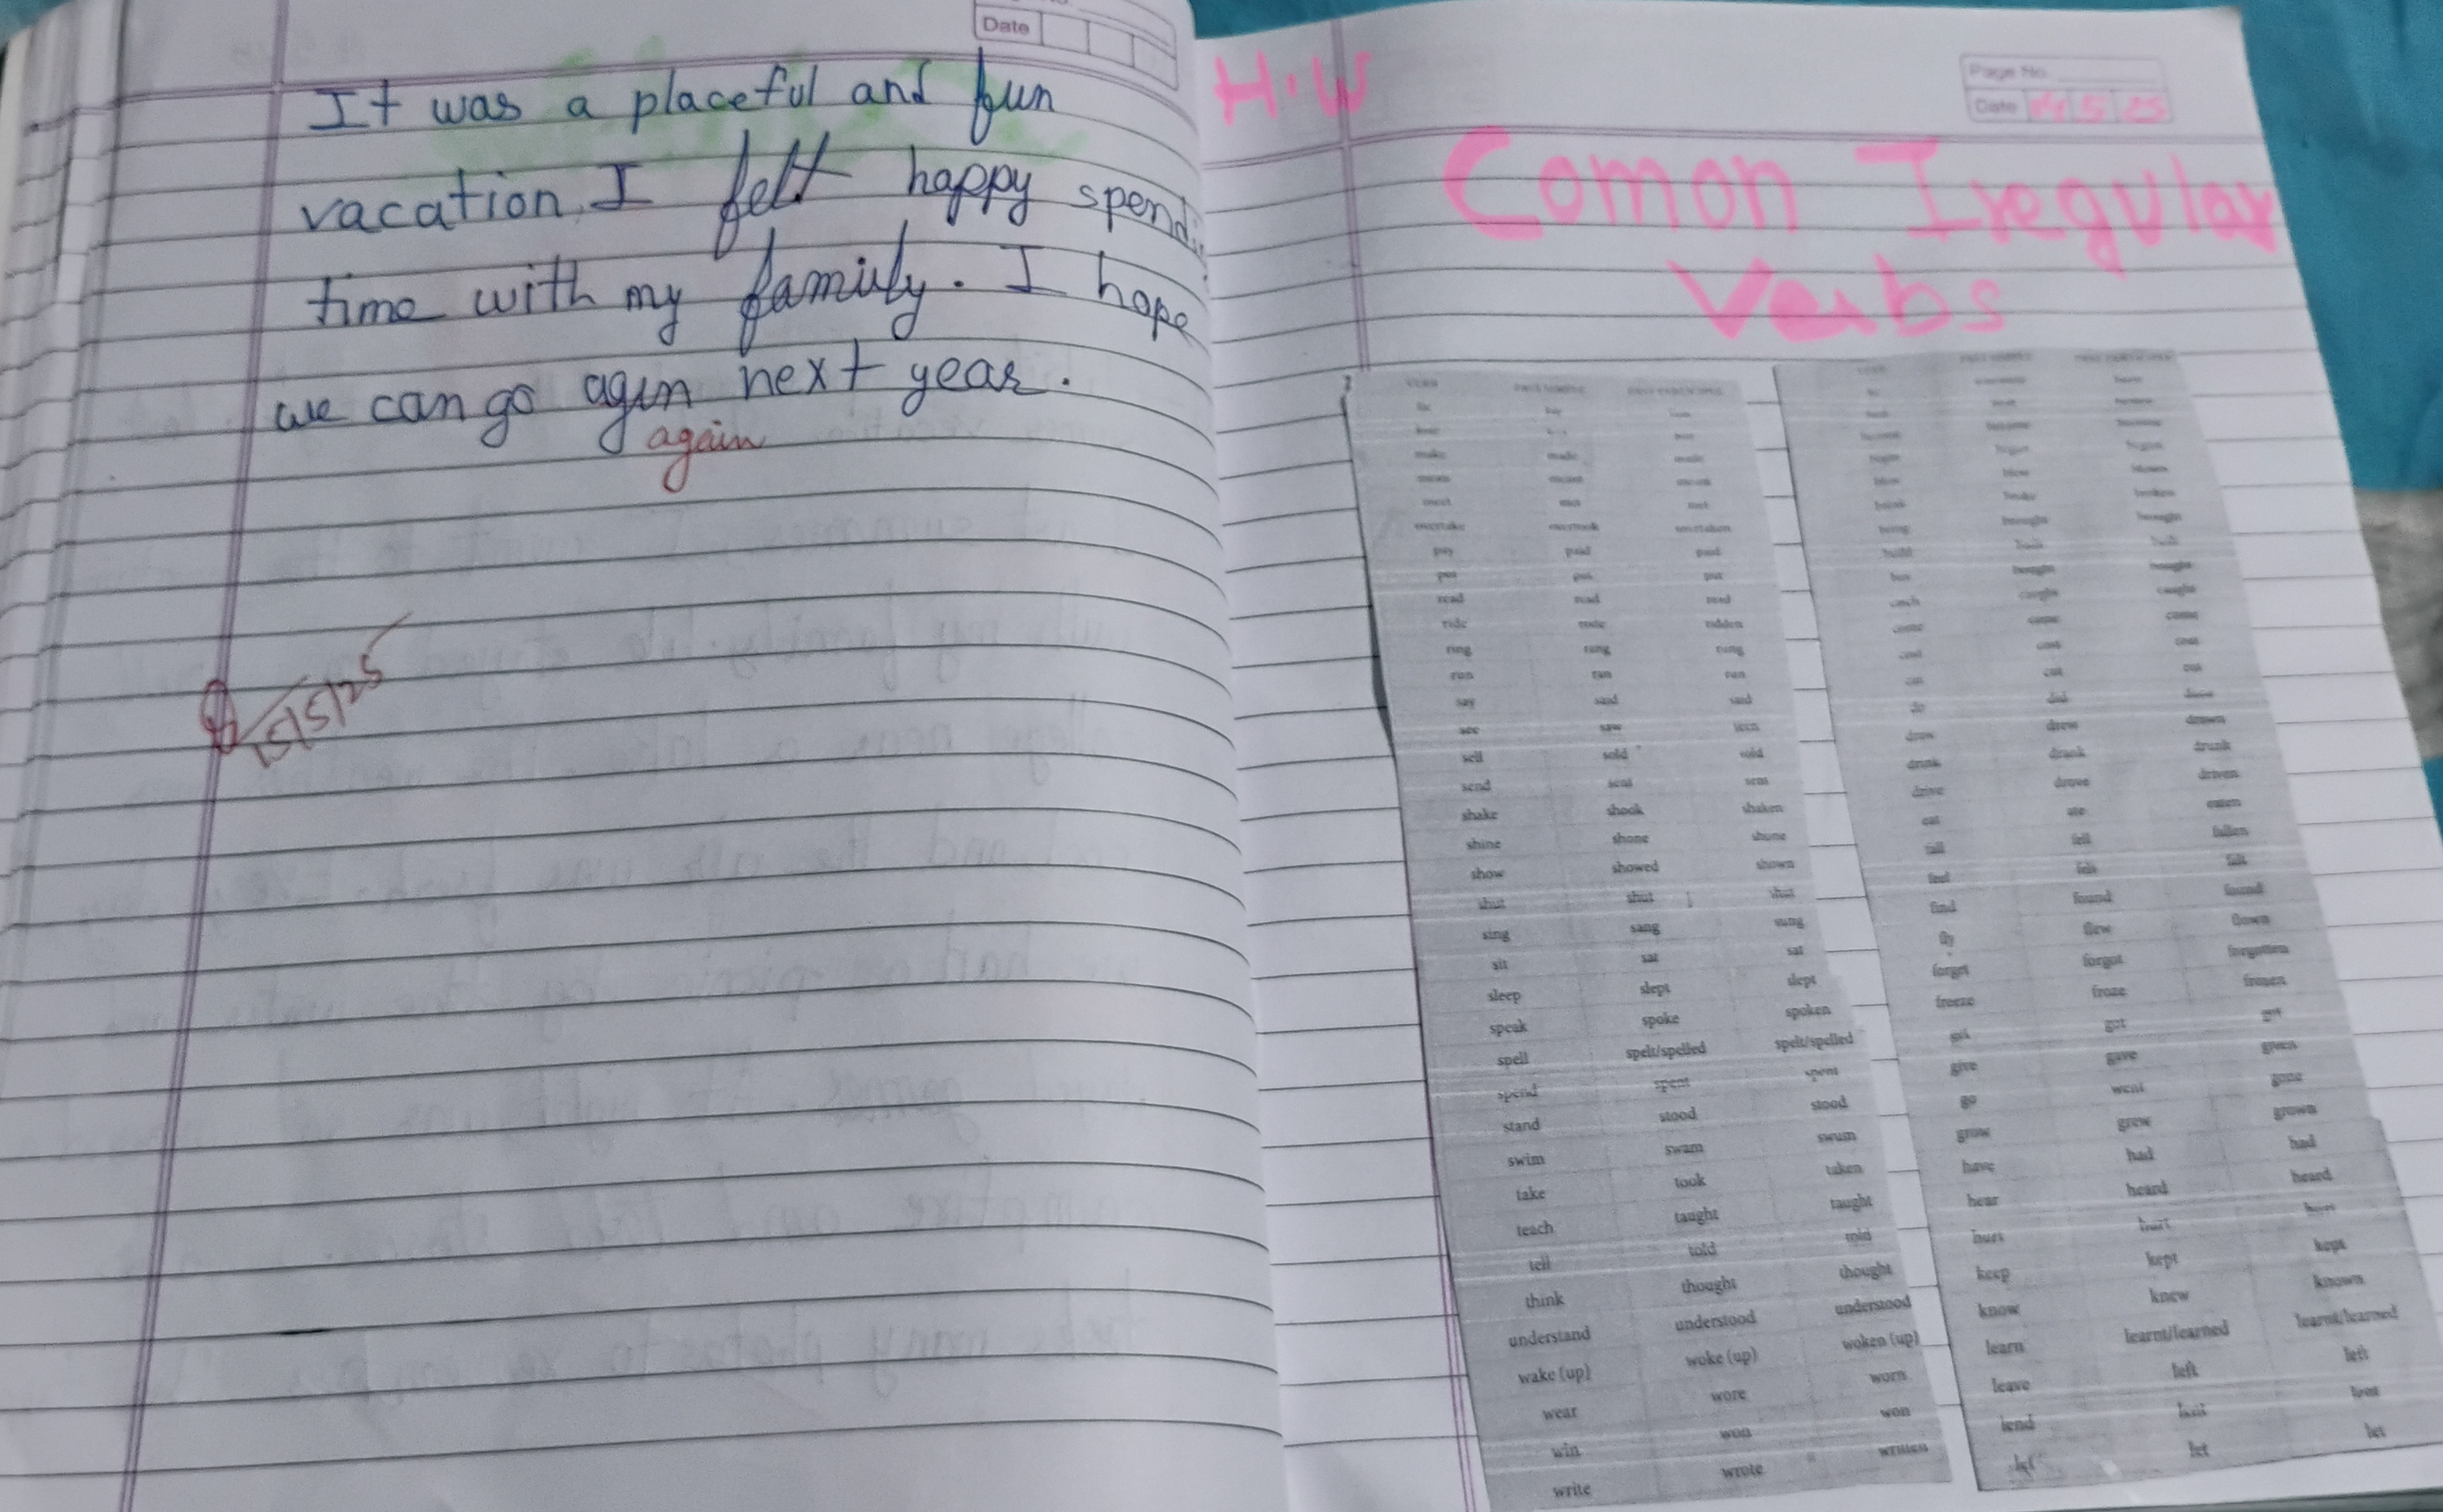 Date
It was a placeful and fun
vacation, I felt happy spendi
time with my family. I hope
we can go agin next year.
again
15/5/25
H.W
Page No.
Date 14 5 25
Comon Iregular
Verbs
make made made
overtake overtook overtaken
pay paid paid
put put put
read read read
ride rode ridden
ring rang rung
run ran run
say said said
see saw seen
sell sold sold
send sent sent
shake shook shaken
shine shone shone
show showed shown
shut shut shut
sing sang sung
sit sat sat
sleep slept slept
speak spoke spoken
spell spelt/spelled spelt/spelled
spend spent spent
stand stood stood
swim swam swum
take took taken
teach taught taught
tell told told
think thought thought
understand understood understood
wake (up) woke (up) woken (up)
wear wore worn
win won won
write wrote written
come came come
cost cost cost
cut cut cut
do did done
draw drew drawn
drink drank drunk
drive drove driven
eat ate eaten
fall fell fallen
feel felt felt
find found found
fly flew flown
forget forgot forgotten
freeze froze frozen
get got got
give gave given
go went gone
grow grew grown
have had had
hear heard heard
hurt hurt hurt
keep kept kept
know knew known
learn learnt/learned learnt/learned
leave left left
lend lent lent
let let let